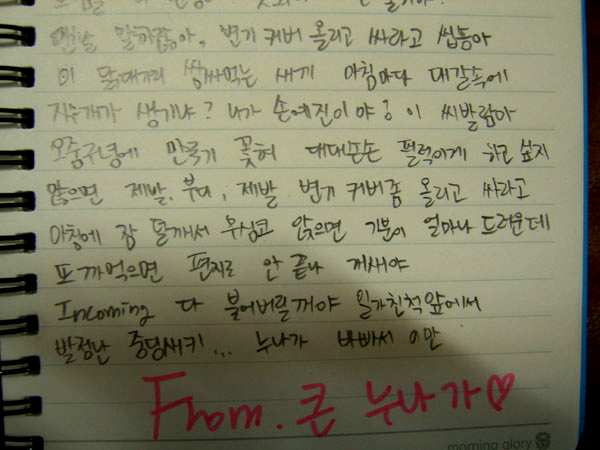 맨날 말하잖아, 변기 커버 올리고 싸라고 씹동아
이 닭대가리 쌈싸먹는 새끼 아침마다 대갈속에
지우개가 생기냐? 니가 손예진이야? 이 씨발람아
오줌구녕에 만국기 꽂혀 대대손손 펄럭이게 하고 싶지
않으면 제발, 부디, 제발 변기 커버좀 올리고 싸라고
아침에 잠 덜깨서 무심코 앉으면 기분이 얼마나 드러운데
또 까먹으면 편지로 안 끝나 개새야
Incoming 다 불어버릴꺼야 일가친척앞에서
발정난 중딩새키... 누나가 바빠서 이만
From. 큰 누나가♡
morning glory